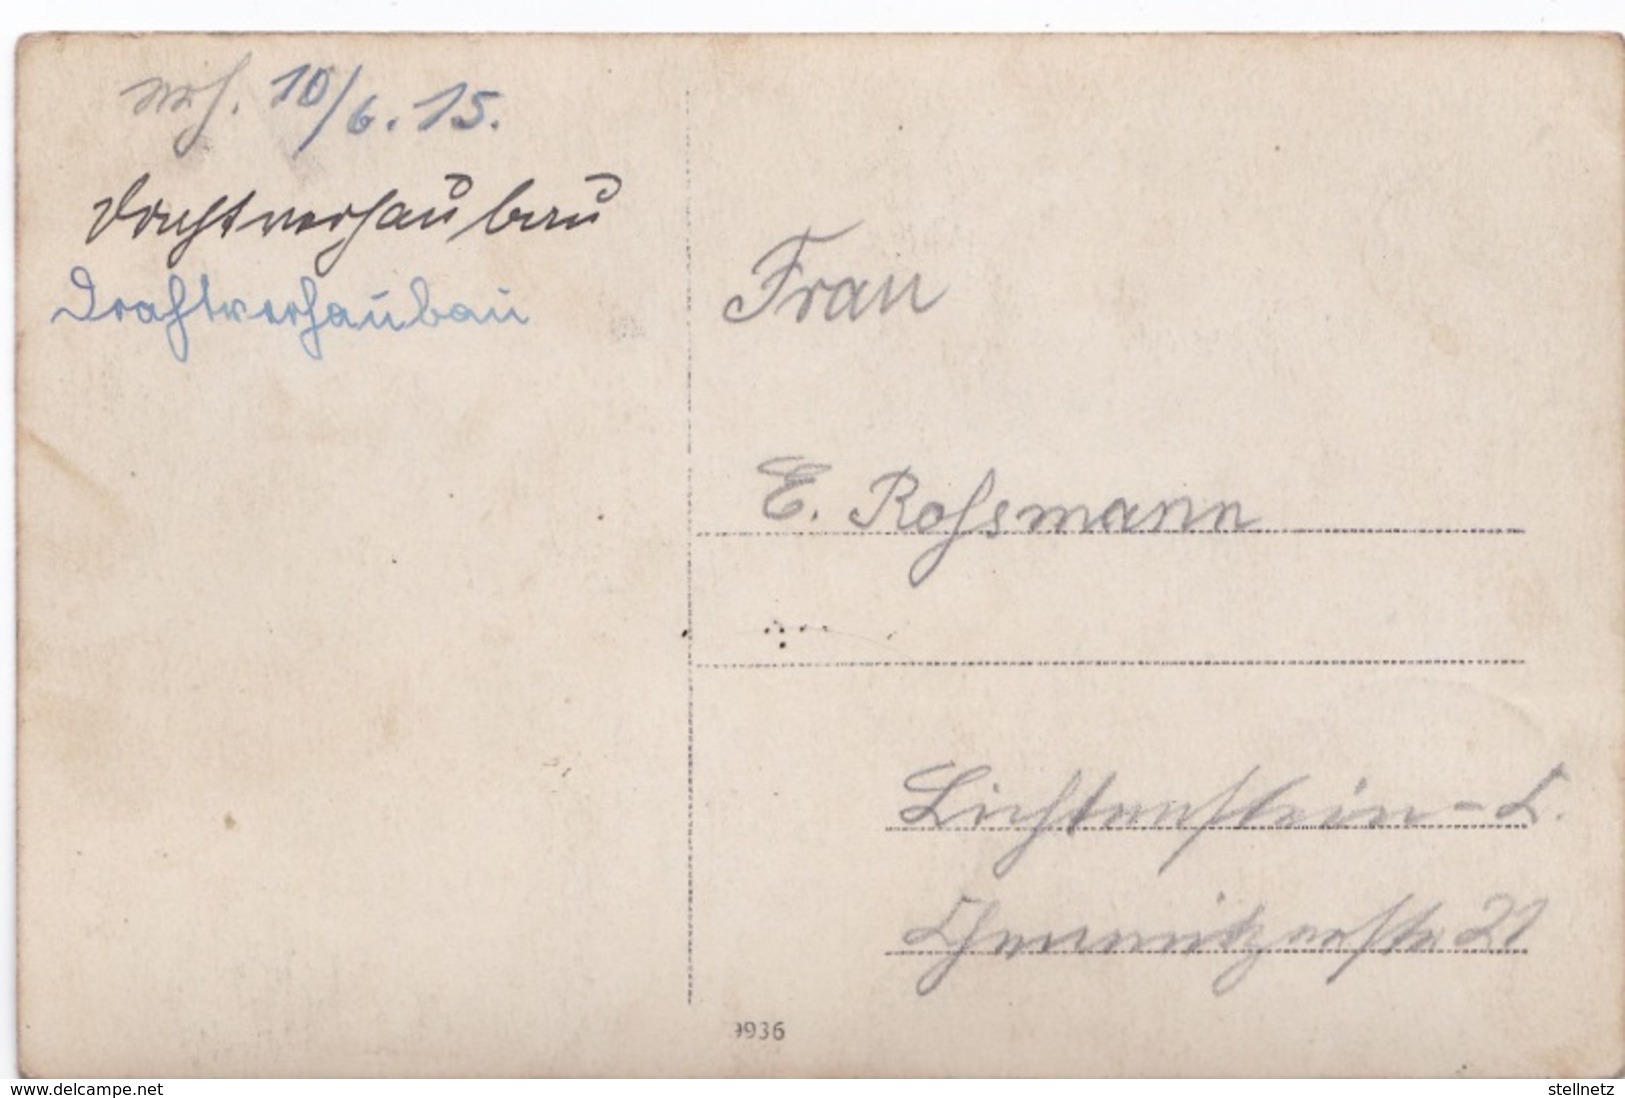 10/6.15.
Drahtverhaubau
Drahtverhaubau
Frau
E. Roſsmann
Lichtenstein-C.
Chemnitzerstr 21
9936
www.delcampe.net
stellnetz